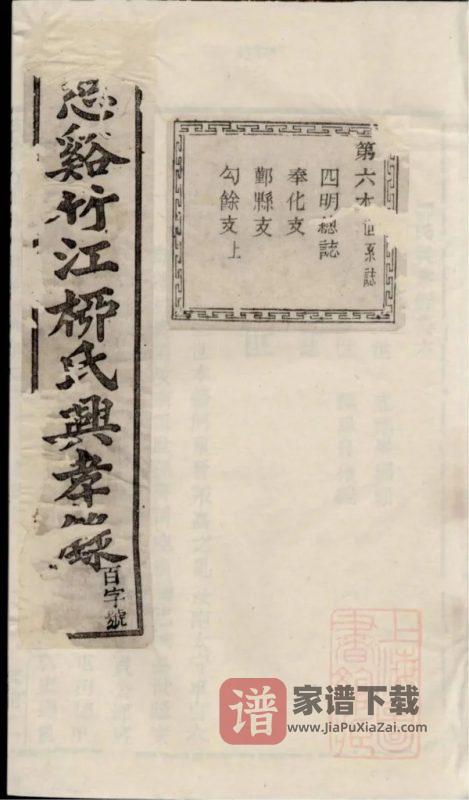 第六本 世系誌
四明總誌
奉化支
鄞縣支
勾餘支上
谿竹江栁氏興孝
百字號
上海圖
書館藏
谱 家谱下载
www.JiaPuXiaZai.com